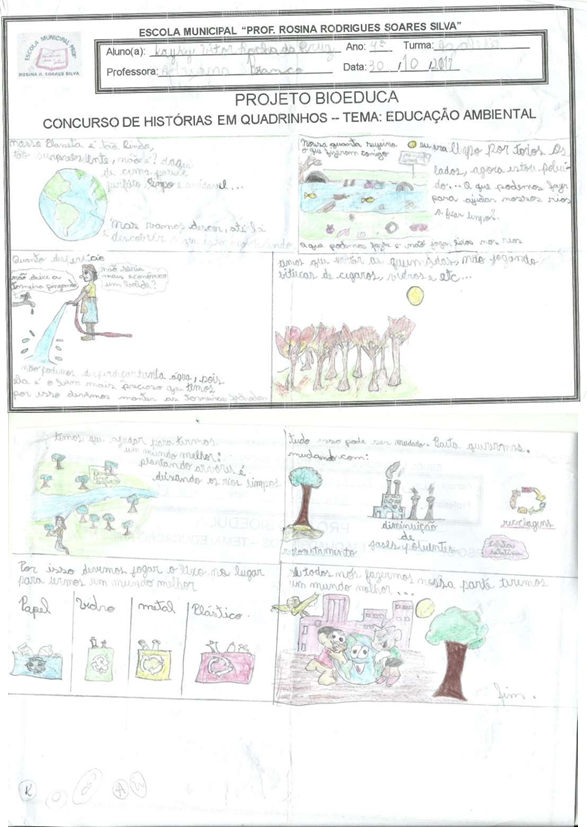 ESCOLA MUNICIPAL "PROF. ROSINA RODRIGUES SOARES SILVA"
ESCOLA MUNICIPAL PROF.
ROSINA R. SOARES SILVA
Aluno(a): Vitor Rocha da Cruz Ano: 4º Turma:
Professora: Branco Data: 30/10/2017
PROJETO BIOEDUCA
CONCURSO DE HISTÓRIAS EM QUADRINHOS -- TEMA: EDUCAÇÃO AMBIENTAL
Nosso Planeta é tão lindo,
tão surpreendente, não é? daqui
de cima parece
perfeito, limpo e
Mas vamos descer, até lá
e descobrir
Nossa quanta sujeira
o que fizeram comigo
eu era limpo por todos os
lados, agora estou polui-
do... O que podemos fazer
para ajudar nossos rios
a ficar limpos?
o que podemos fazer é não jogar lixos nos rios
Quanto desperdício
não deixe as
torneira pingando
não seria
mais econômico
um balde?
não podemos desperdiçar tanta água, pois
ela é o bem mais precioso que temos
por isso devemos manter as torneiras fechadas
temos que evitar as queimadas, não jogando
bitucas de cigaros, vidros e etc...
temos que ajudar para termos
um mundo melhor:
plantando arvores é
deixando os rios limpos
Tudo isso pode ser mudado. Basta querermos.
mudando com:
reflorestamento
diminuição
de
gases poluentes
reciclagens
Por isso devemos jogar o lixo no lugar
para termos um mundo melhor
Papel
Vidro
metal
Plástico
Se todos nós fazermos nossa parte teremos
um mundo melhor...
fim.